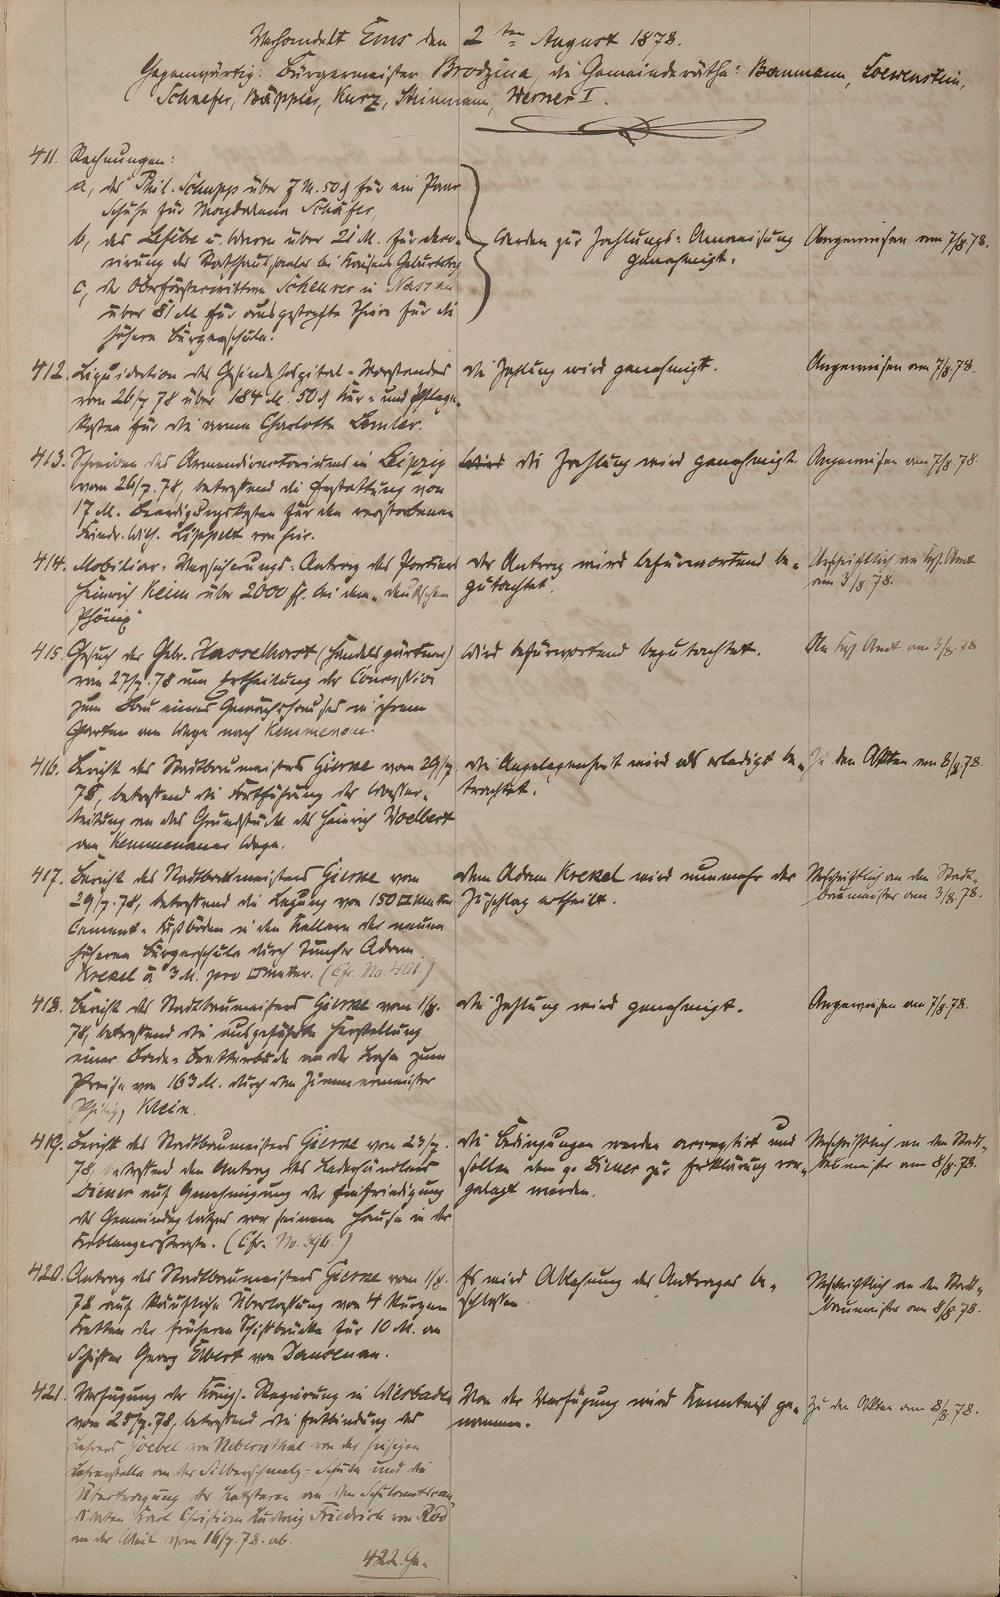 Verhandelt Ems den 2ten August 1878.
Gegenwärtig: Bürgermeister Brodzina, die Gemeinderäthe: Baumann, Loewenstein,
Schaefer, Bäppler, Kurz, Steinmann, Werner I.
411. Rechnungen:
a, des Phil. Schupp über 7 M. 50 ₰ für ein Paar
Schuhe für Magdalena Schäfer,
b, des u. über 21 M. für Deko-
rirung des Rathhaussaales bei Kaisers Geburtstag
c, der Oberförsterwittwe Scheurer in Nassau
über 81 M für ausgestopfte Thiere für die
höhere Bürgerschule.
Werden zur Zahlungs-Anweisung
genehmigt.
Angewiesen am 7/8.78.
412. Liquidation des Gesindehospital-Vorstandes
vom 26/7 78 über 184 M. 50 ₰ Kur- und Pflege-
kosten für die arme Charlotte Lemler.
die Zahlung wird genehmigt.
Angewiesen am 7/8.78.
413. Schreiben des Armendirectoriums in Leipzig
vom 26/7.78, betreffend die Erstattung von
17 M. Beerdigungskosten für den verstorbenen
Friedr. Wilh. Lippelt von hier.
Wird die Zahlung wird genehmigt.
Angewiesen am 7/8.78.
414. Mobiliar-Versicherungs-Antrag des Portiers
Heinrich Keim über 2000 fl. bei dem "deutschen
Phönix"
der Antrag wird befürwortend be-
gutachtet.
Urschriftlich an Kgl. Amt
am 3/8.78.
415. Gesuch der Gebr. Hasselhorst (Handelsgärtner)
vom 27/7.78 um Ertheilung der Concession
zum Bau eines Gewächshauses in ihrem
Garten am Wege nach Kemmenau.
Wird befürwortend begutachtet.
An Kgl. Amt am 3/8.78.
416. Bericht des Stadtbaumeisters Gierne vom 29/7.
78, betreffend die Fortführung der Wasser-
leitung an das Grundstück des Heinrich Woelbert
am Kemmenauer Wege.
die Angelegenheit wird als erledigt be-
trachtet.
Zu den Akten am 8/8.78.
417. Bericht des Stadtbaumeisters Gierne vom
29/7.78, betreffend die Legung von 150 □Meter
Cement-Fußböden in den Kellern der neuen
höheren Bürgerschule durch Tüncher Adam
Krekel à 3 M. pro □Meter. (Cfr. No. 401.)
dem Adam Krekel wird nunmehr der
Zuschlag ertheilt.
Urschriftlich an den Stadt-
baumeister am 3/8.78.
418. Bericht des Stadtbaumeisters Gierne vom 1/8.
78, betreffend die ausgeführte Herstellung
einer Bade-Bretterbude an der Lahn zum
Preise von 163 M. durch den Zimmermeister
Philipp Klein.
die Zahlung wird genehmigt.
Angewiesen am 7/8.78.
419. Bericht des Stadtbaumeisters Gierne vom 23/7.
78, betreffend den Antrag des Lederhändlers
Diener auf Genehmigung der Einfriedigung
des Gemeindeplatzes vor seinem Hause in der
Coblenzerstraße. (Cfr. No. 396.)
die Bedingungen werden acceptirt und
sollen dem pp Diener zur Erklärung vor-
gelegt werden.
Urschriftlich an den Stadt-
baumeister am 8/8.78.
420. Antrag des Stadtbaumeisters Gierne vom 1/8.
78 auf käufliche Überlassung von 4 kurzen
Ketten der früheren Schiffbrücke für 10 M. an
Schiffer Georg Elbert von Dausenau.
Es wird Ablehnung des Antrages be-
schlossen.
Urschriftlich an den Stadt-
baumeister am 8/8.78.
421. Verfügung der Königl. Regierung in Wiesbaden
vom 25/7.78, betreffend die Entbindung des
Lehrers Goebel von Uebernthal von der hiesigen
Lehrerstelle an der Silberschmelz-Schule und die
Übertragung der Letzteren an den Schulamtscan-
didaten Karl Christian Ludwig Friedrich von Rod
an der Weil vom 16/7.78. ab.
Von der Verfügung wird Kenntniß ge-
nommen.
Zu den Akten am 8/8.78.
422. Ge-